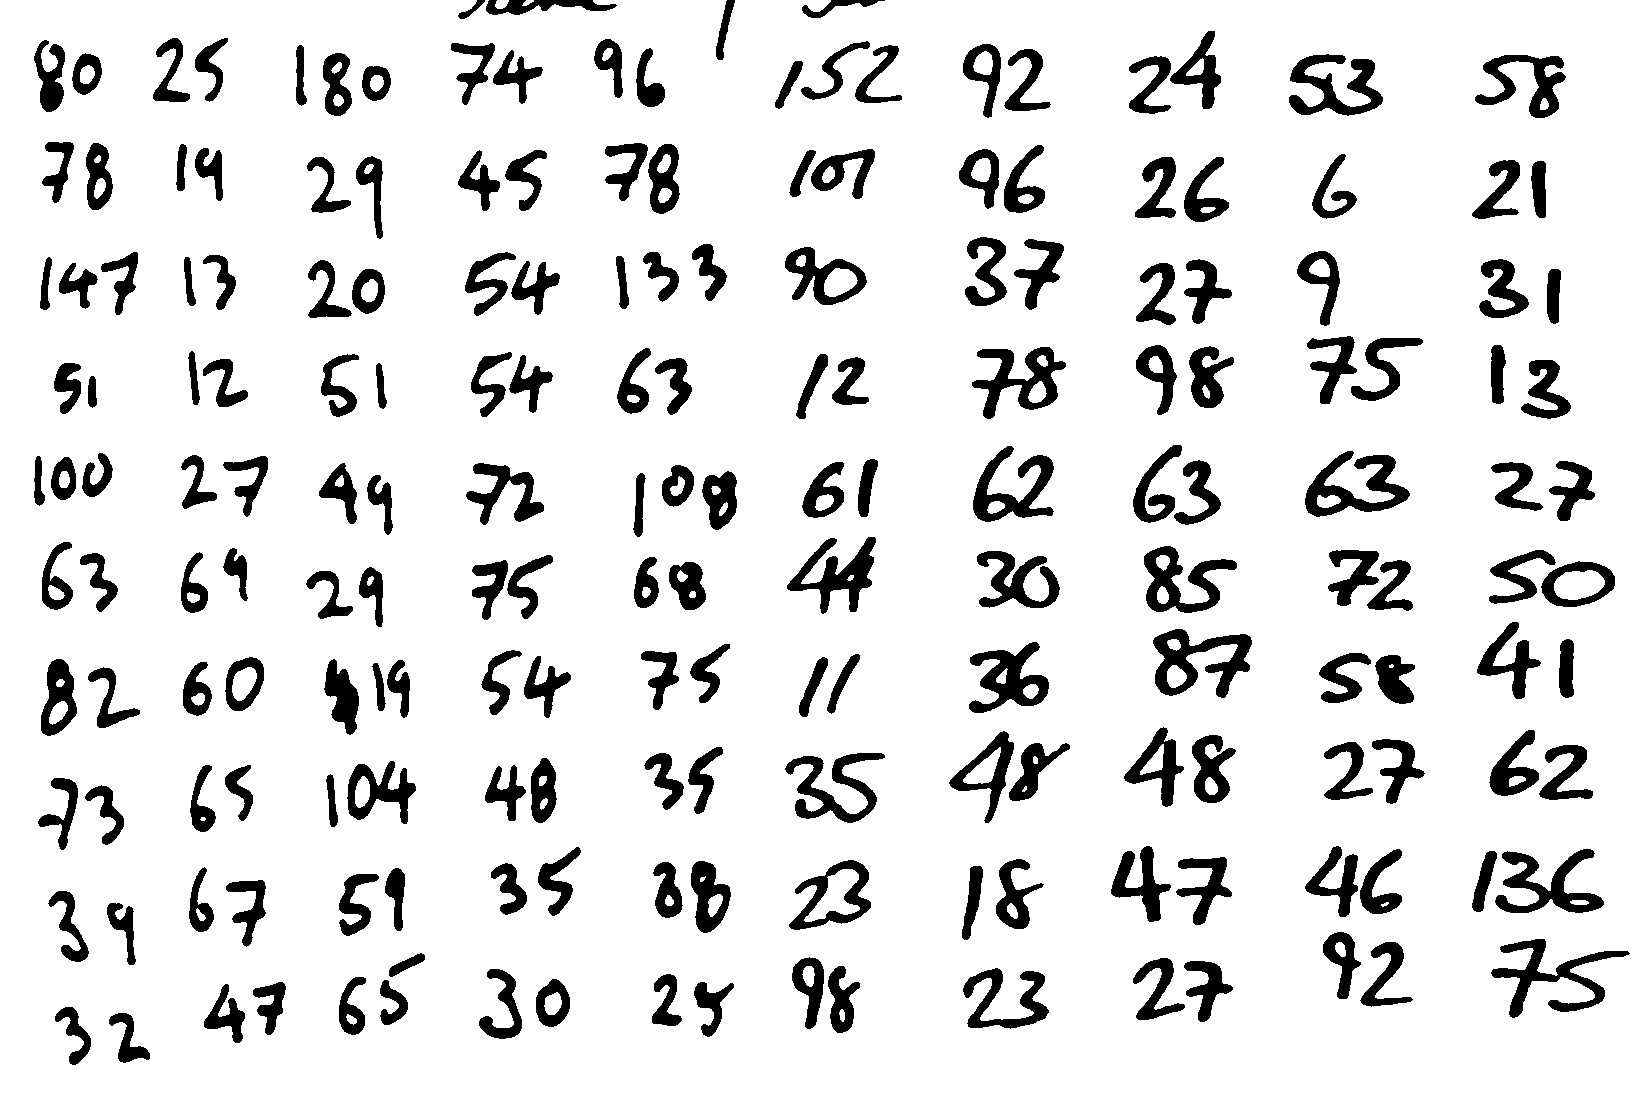 80 25 180 74 96 152 92 24 53 58
78 19 29 45 78 107 96 26 6 21
147 13 20 54 133 90 37 27 9 31
51 12 51 54 63 12 78 98 75 13
100 27 49 72 108 61 62 63 63 27
63 69 29 75 68 44 30 85 72 50
82 60 19 54 75 11 36 87 58 41
73 65 104 48 35 35 48 48 27 62
39 67 59 35 38 23 18 47 46 136
32 47 65 30 25 98 23 27 92 75